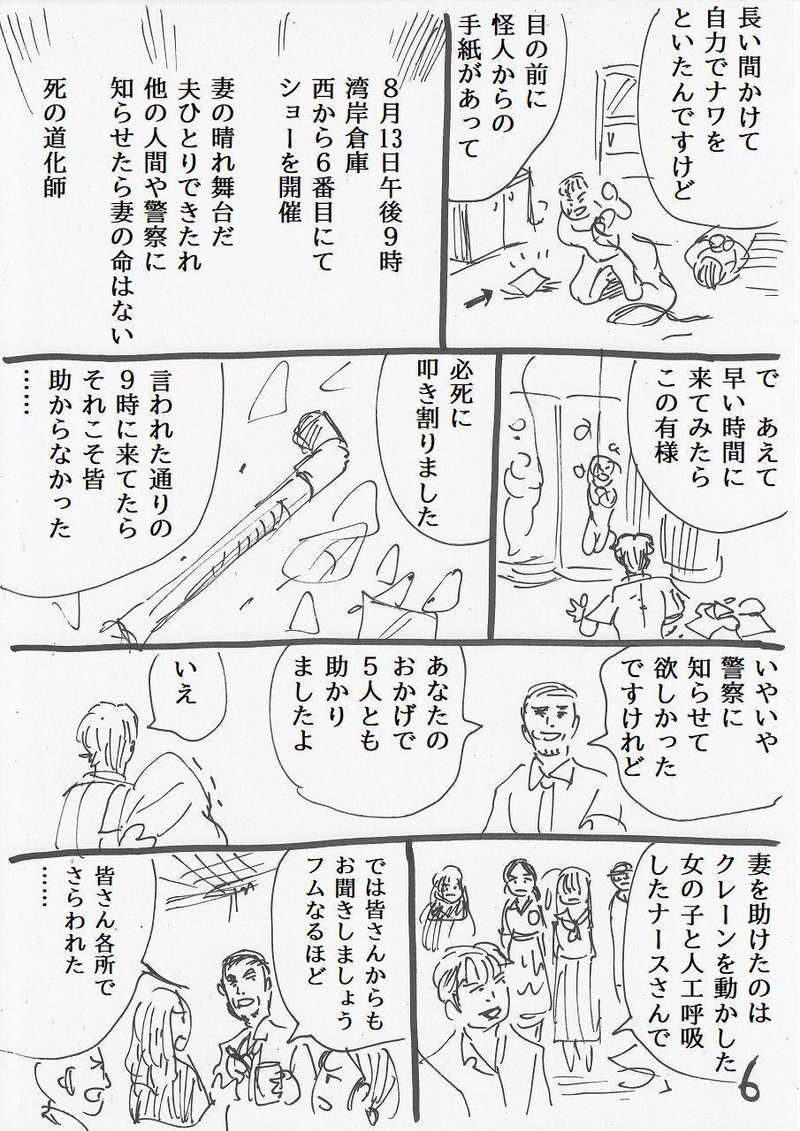 長い間かけて
自力でナワを
といたんですけど
目の前に
怪人からの
手紙があって
８月13日午後９時
湾岸倉庫
西から６番目にて
ショーを開催
妻の晴れ舞台だ
夫ひとりできたれ
他の人間や警察に
知らせたら妻の命はない
死の道化師
で　あえて
早い時間に
来てみたら
この有様
必死に
叩き割りました
言われた通りの
９時に来てたら
それこそ皆
助からなかった
……
いやいや
警察に
知らせて
欲しかった
ですけれど
あなたの
おかげで
５人とも
助かり
ましたよ
いえ
妻を助けたのは
クレーンを動かした
女の子と人工呼吸
したナースさんで
では皆さんからも
お聞きしましょう
フムなるほど
皆さん各所で
さらわれた
……
6